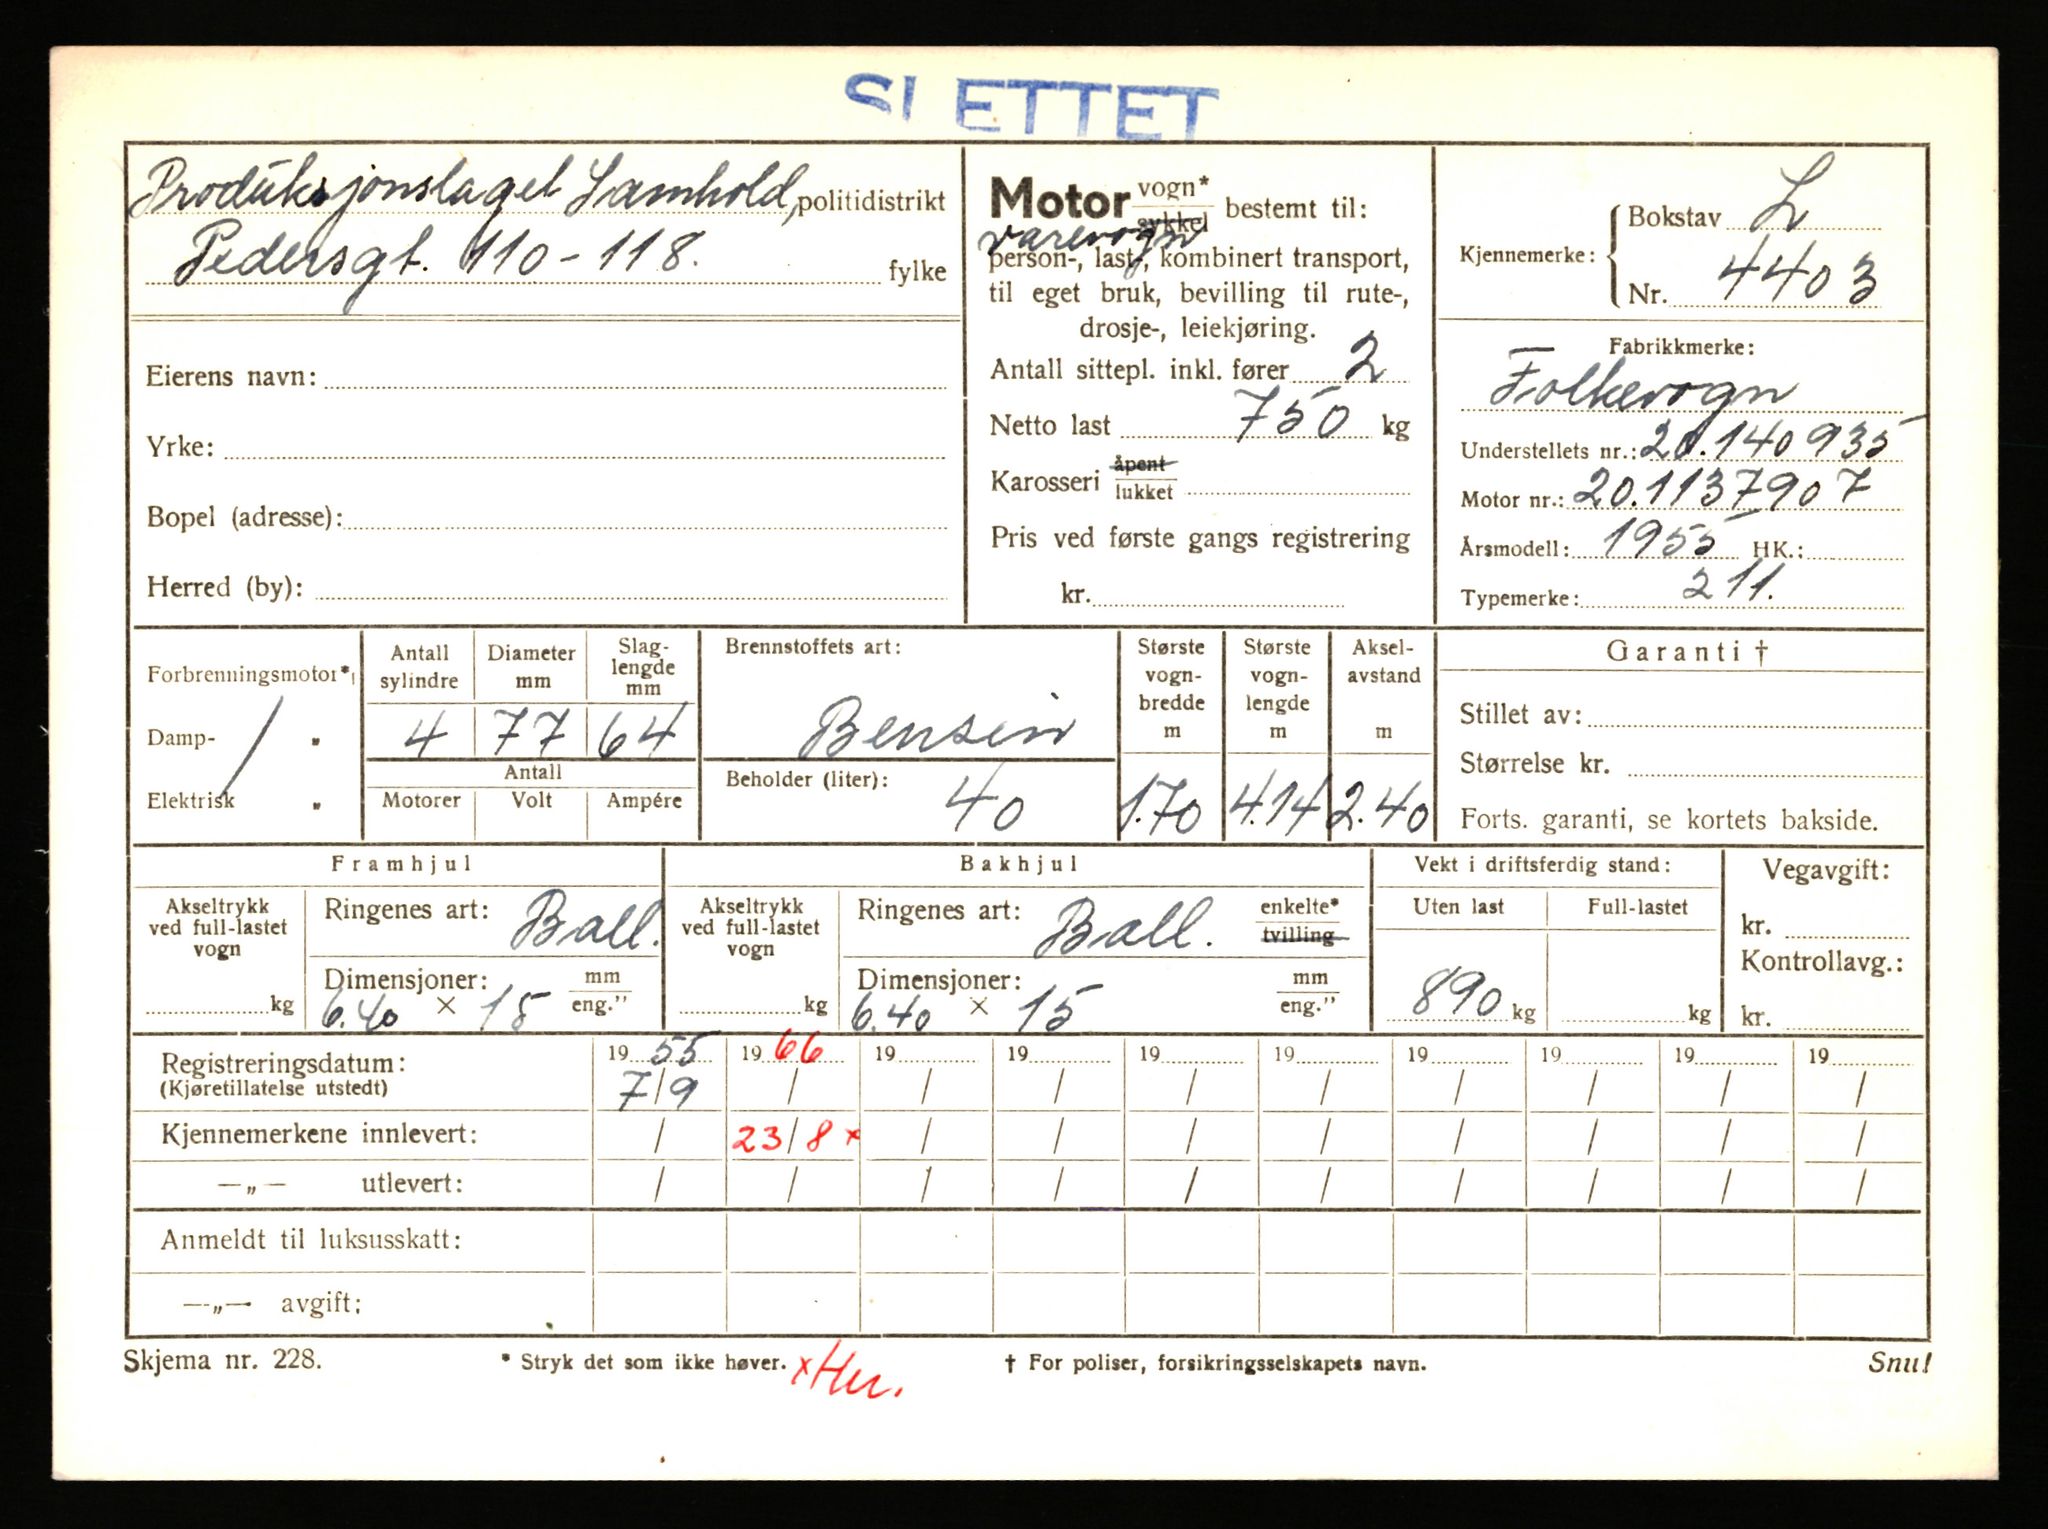 SLETTET
Produksjonslaget Samhold, politidistrikt
Pedersgt. 110-118. fylke
Eierens navn:
Yrke:
Bopel (adresse):
Herred (by):
Motor vogn* sykkel bestemt til:
varevogn
person-, last-, kombinert transport,
til eget bruk, bevilling til rute-,
drosje-, leiekjøring.
Antall sittepl. inkl. fører 2
Netto last 750 kg
Karosseri åpent lukket
Pris ved første gangs registrering
kr.
Kjennemerke: Bokstav L
Nr. 4403
Fabrikkmerke:
Folkevogn
Understellets nr.: 20.140935
Motor nr.: 20.1137907
Årsmodell: 1955 HK.:
Typemerke: 211.
Forbrenningsmotor*)
Damp- „
Elektrisk „
Antall sylindre
4
Diameter mm
77
Slaglengde mm
64
Antall
Motorer Volt Ampére
Brennstoffets art:
Bensin
Beholder (liter):
40
Største vognbredde m
1.70
Største vognlengde m
4.14
Akselavstand m
2.40
Garanti †
Stillet av:
Størrelse kr.
Forts. garanti, se kortets bakside.
Framhjul
Akseltrykk ved full-lastet vogn
kg
Ringenes art: Ball.
Dimensjoner: mm eng."
6.40 × 15
Bakhjul
Akseltrykk ved full-lastet vogn
kg
Ringenes art: Ball. enkelte* tvilling
Dimensjoner: mm eng."
6.40 × 15
Vekt i driftsferdig stand:
Uten last Full-lastet
890 kg kg
Vegavgift:
kr.
Kontrollavg.:
kr.
Registreringsdatum: 19 55 19 66 19 19 19 19 19 19 19 19
(Kjøretillatelse utstedt) 7/9 / / / / / / / / /
Kjennemerkene innlevert: / 23/8 x / / / / / / / /
—„— utlevert: / / / / / / / / / /
Anmeldt til luksusskatt:
—„— avgift:
Skjema nr. 228. * Stryk det som ikke høver. x Hu. † For poliser, forsikringsselskapets navn. Snu!